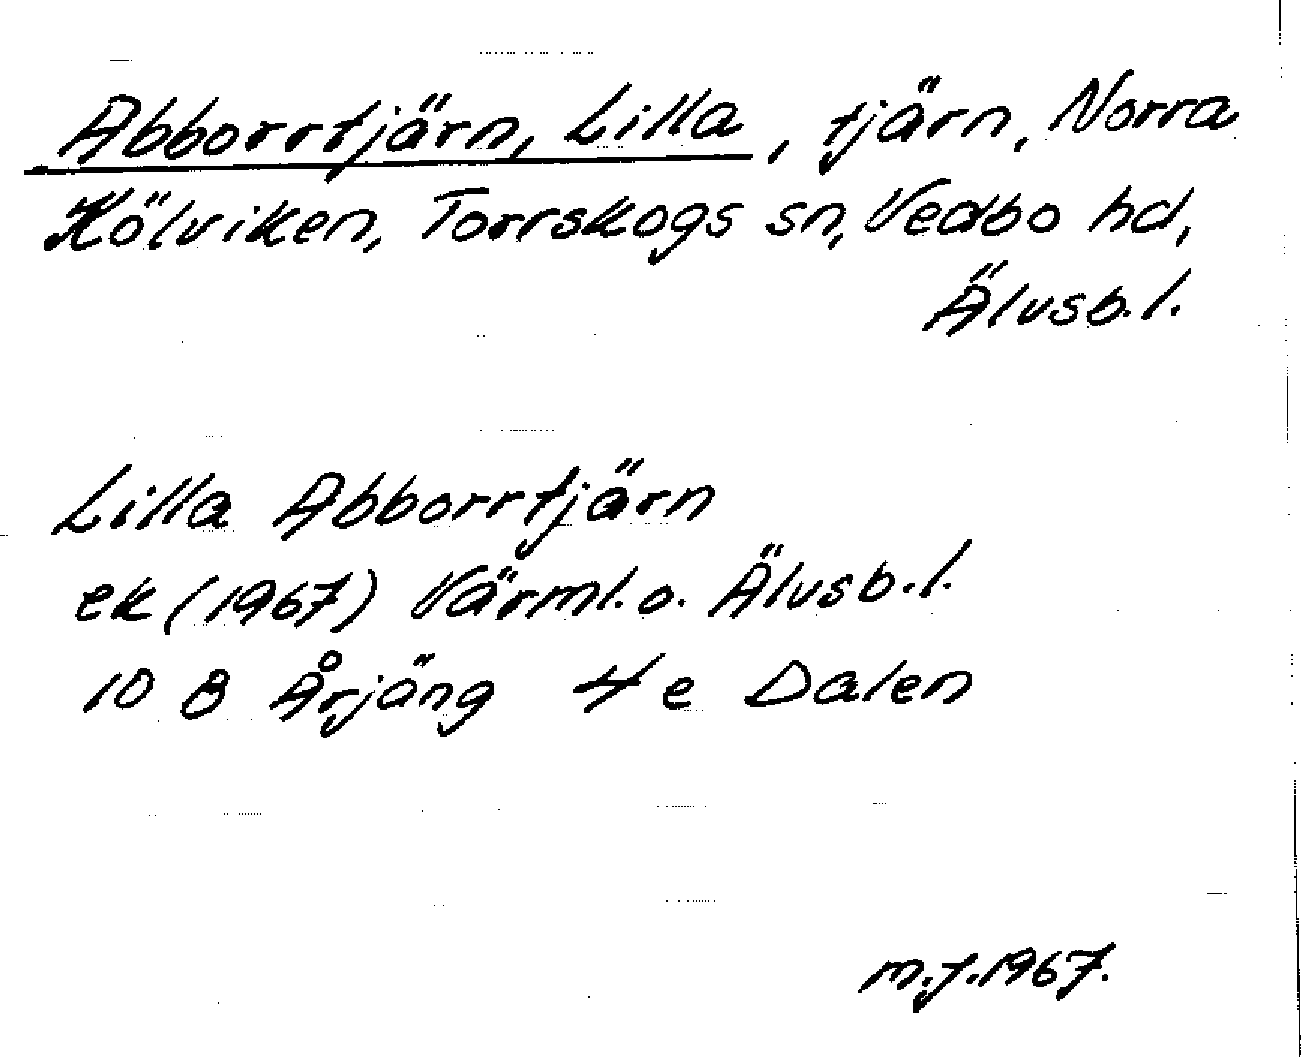 Abborrtjärn, Lilla, tjärn, Norra
Kölviken, Torrskogs sn, Vedbo hd,
Älvsb.l.
Lilla Abborrtjärn
ek (1967) Värml. o. Älvsb.l.
10 B Årjäng 4 e Dalen
M.J. 1967.